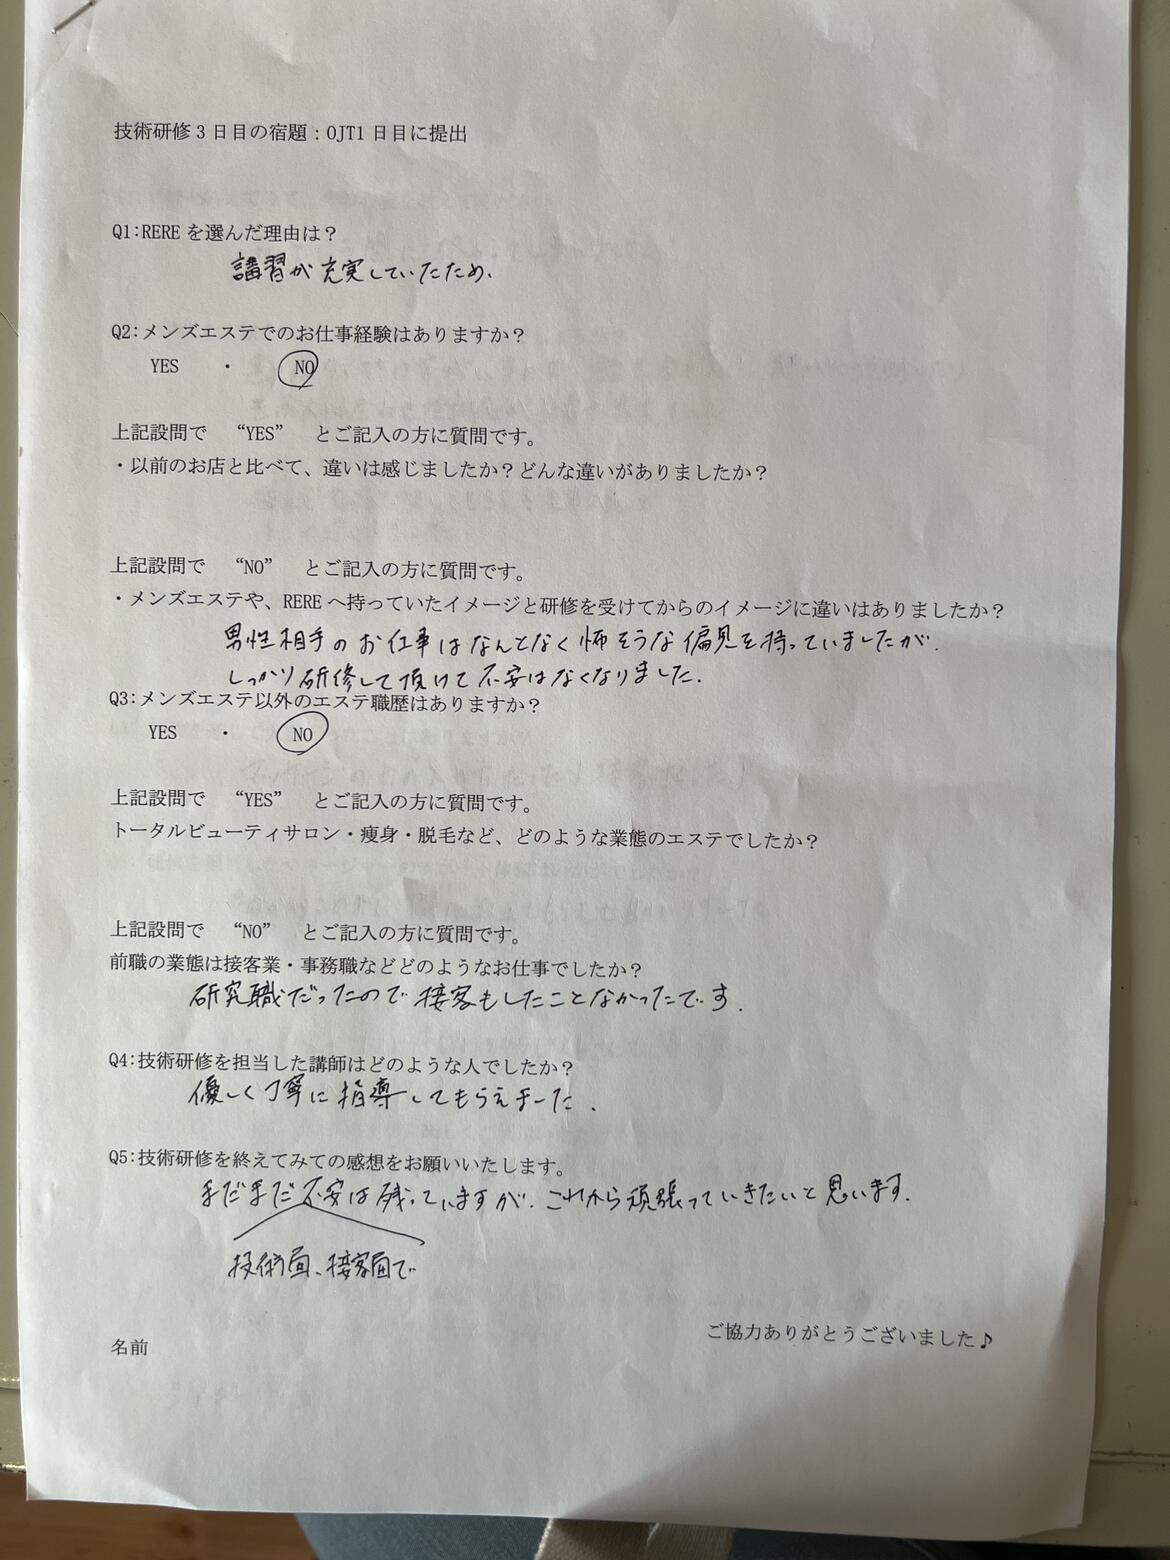 技術研修3日目の宿題：OJT1日目に提出
Q1:REREを選んだ理由は？
講習が充実していたため、
Q2:メンズエステでのお仕事経験はありますか？
YES ・ NO
上記設問で “YES” とご記入の方に質問です。
・以前のお店と比べて、違いは感じましたか？どんな違いがありましたか？
上記設問で “NO” とご記入の方に質問です。
・メンズエステや、REREへ持っていたイメージと研修を受けてからのイメージに違いはありましたか？
男性相手のお仕事はなんとなく怖そうな偏見を持っていましたが、
しっかり研修して頂けて不安はなくなりました.
Q3:メンズエステ以外のエステ職歴はありますか？
YES ・ NO
上記設問で “YES” とご記入の方に質問です。
トータルビューティサロン・痩身・脱毛など、どのような業態のエステでしたか？
上記設問で “NO” とご記入の方に質問です。
前職の業態は接客業・事務職などどのようなお仕事でしたか？
研究職だったので接客もしたことなかったです.
Q4:技術研修を担当した講師はどのような人でしたか？
優しく丁寧に指導してもらえました.
Q5:技術研修を終えてみての感想をお願いいたします。
まだまだ不安は残っていますが、これから頑張っていきたいと思います.
技術面、接客面で
ご協力ありがとうございました♪
名前